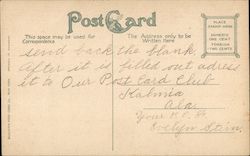 Post Card
This space may be used for Correspondence
The Address only to be Written Here
PLACE STAMP HERE
DOMESTIC ONE CENT
FOREIGN TWO CENTS
send back the blank
after it is filled out adress
it to Our Post Card Club
Kalmia
Ala
Your
Evelyn